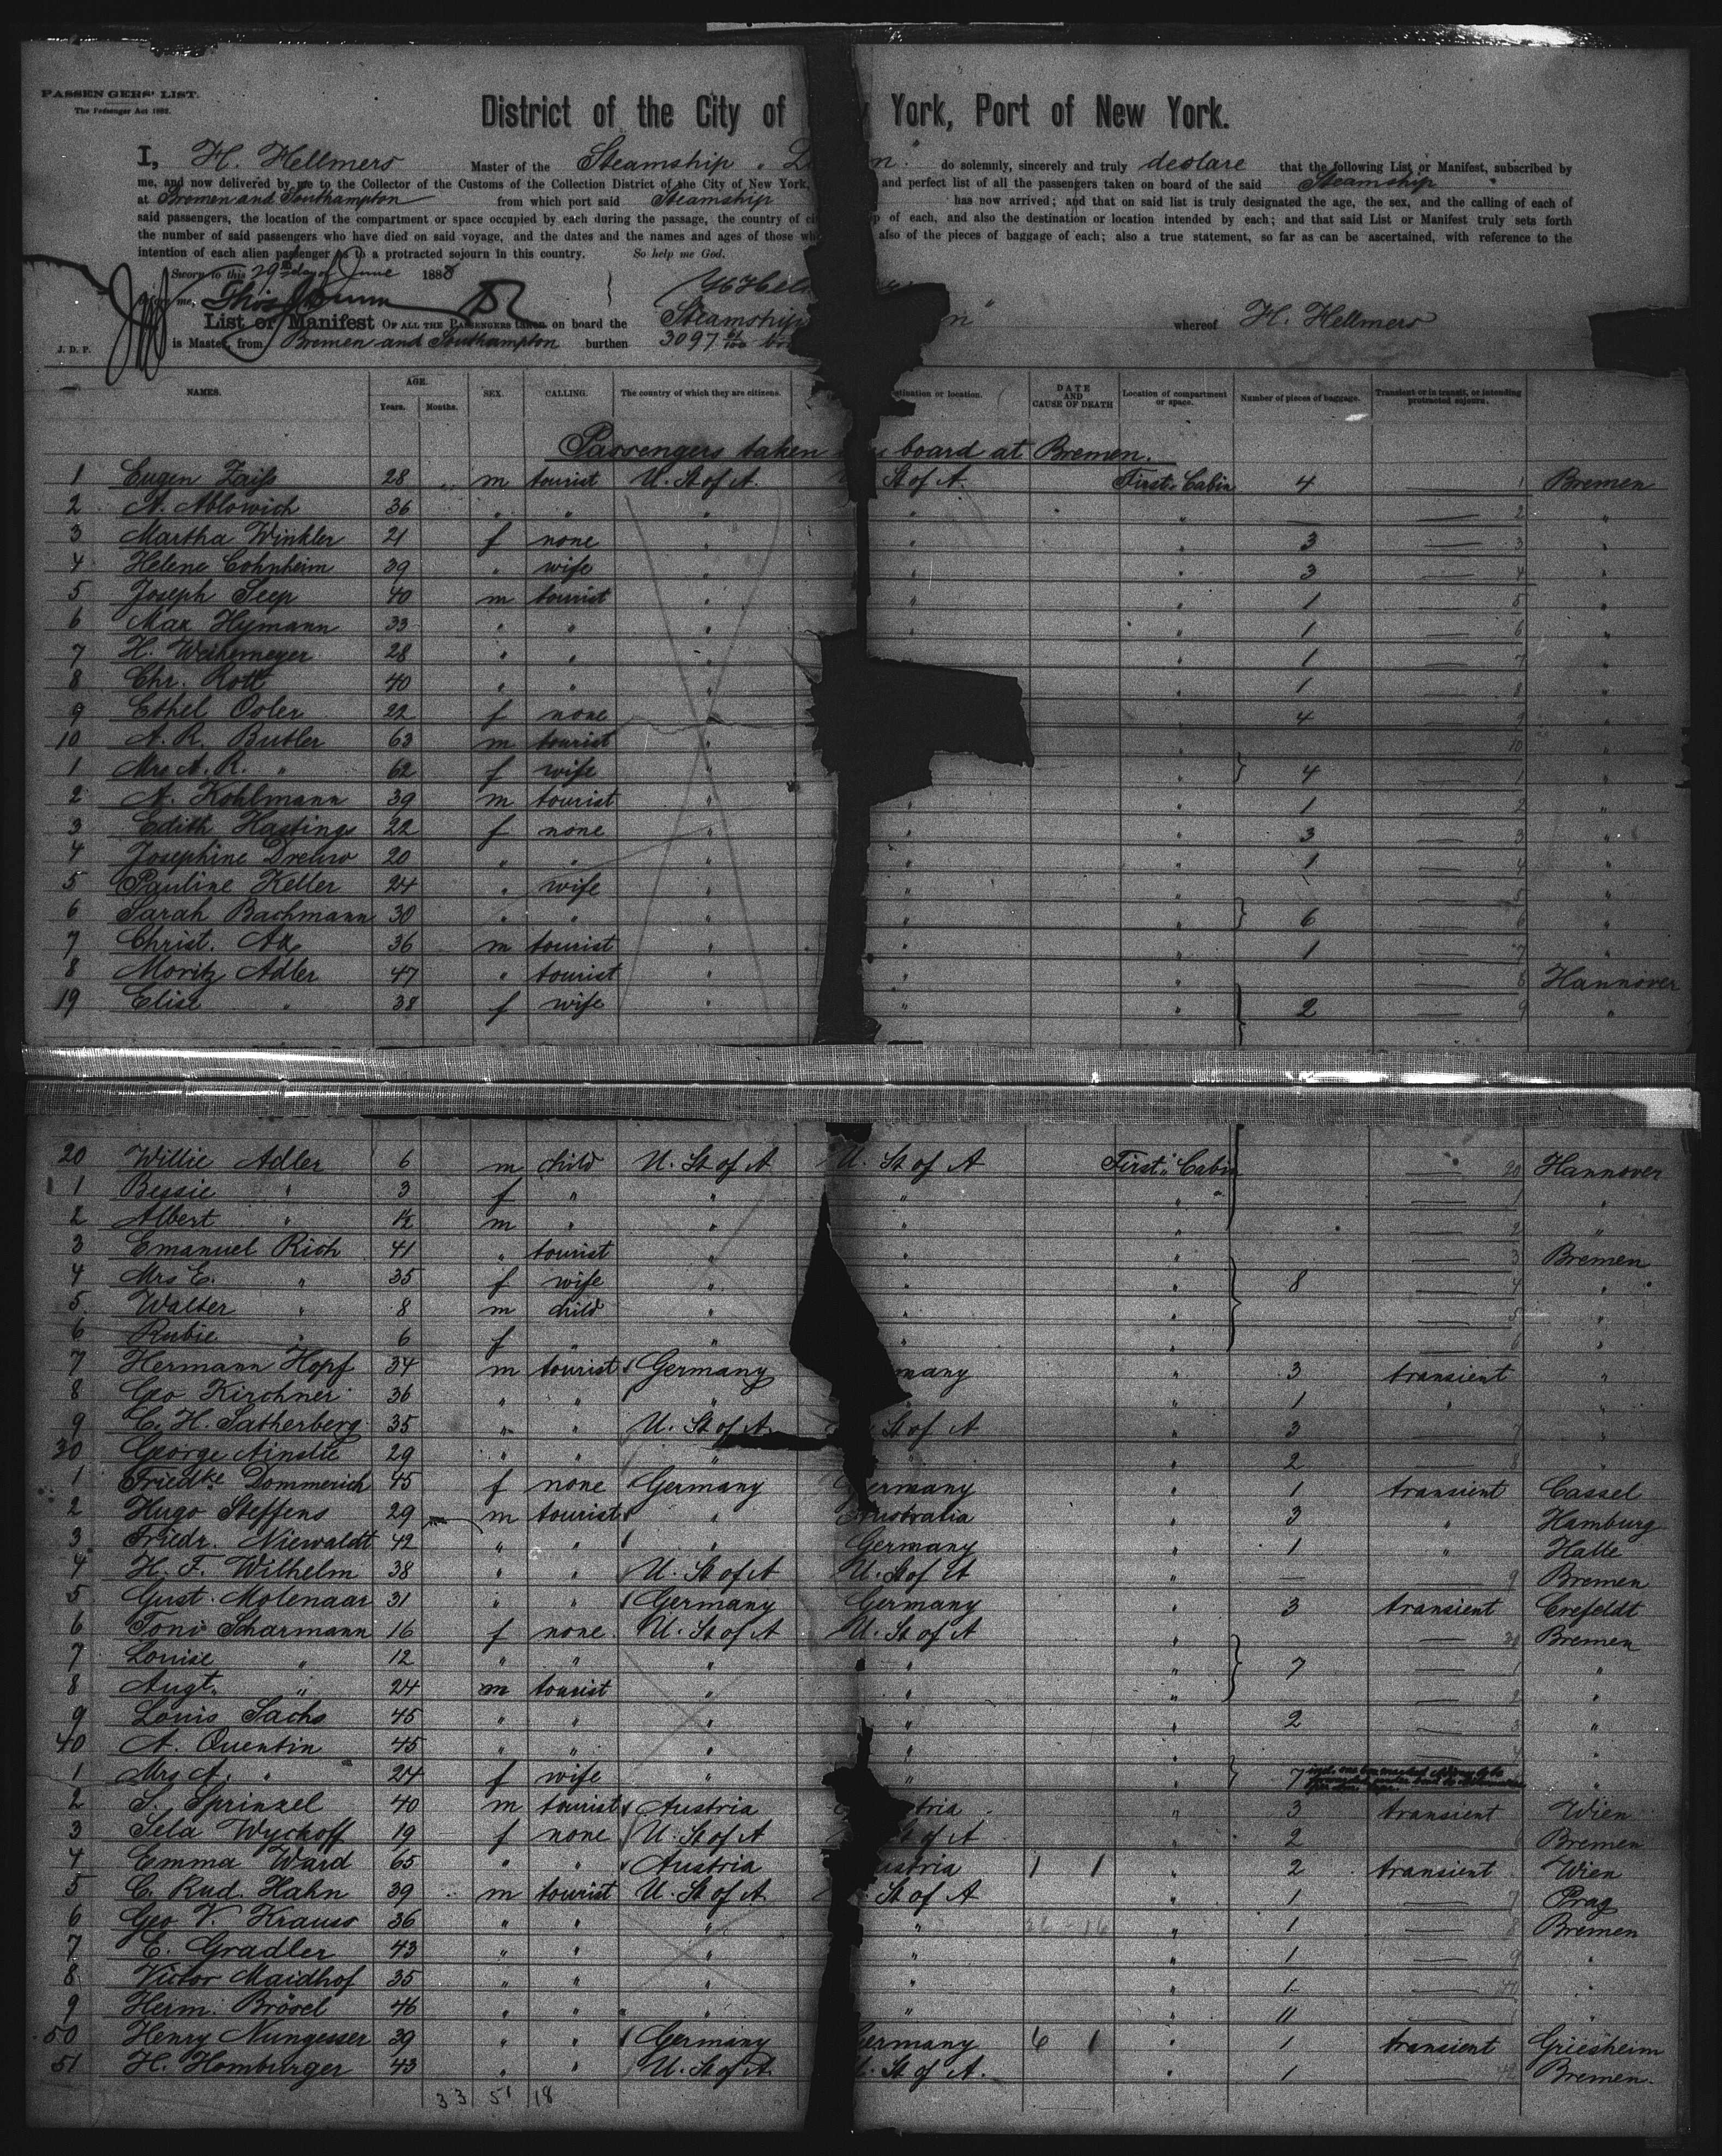 PASSENGERS' LIST.
The Passenger Act 1882.
District of the City of York, Port of New York.
I, H. Hellmers Master of the Steamship " do solemnly, sincerely and truly declare that the following List or Manifest, subscribed by
me, and now delivered by me to the Collector of the Customs of the Collection District of the City of New York, and perfect list of all the passengers taken on board of the said Steamship
at Bremen and Southampton from which port said Steamship has now arrived; and that on said list is truly designated the age, the sex, and the calling of each of
said passengers, the location of the compartment or space occupied by each during the passage, the country of of each, and also the destination or location intended by each; and that said List or Manifest truly sets forth
the number of said passengers who have died on said voyage, and the dates and the names and ages of those also of the pieces of baggage of each; also a true statement, so far as can be ascertained, with reference to the
intention of each alien passenger as to a protracted sojourn in this country. So help me God.
Sworn to this 29th day of June 1888
me,
List or Manifest OF ALL THE PASSENGERS taken on board the Steamship whereof H. Hellmers
J. D. P. is Master, from Bremen and Southampton burthen 3097
NAMES. AGE. Years. Months. SEX. CALLING. The country of which they are citizens. or location. DATE AND CAUSE OF DEATH Location of compartment or space. Number of pieces of baggage. Transient or in transit, or intending protracted sojourn.
Passengers taken board at Bremen.
1 Eugen Zaiss 28 " m tourist U. St of A. St of A. First Cabin 4 — 1 Bremen
2 A. Ablowich 36 " " " " " — — 2 "
3 Martha Winkler 21 f none " " " 3 — 3 "
4 Helene Cohnheim 39 " wife " " " 3 — 4 "
5 Joseph Seep 40 m tourist " " " 1 — 5 "
6 Max Hymann 33 " " " " 1 — 6 "
7 H. Weihemeyer 28 " " " " 1 — 7 "
8 Chr. Rott 40 " " " " 1 — 8 "
9 Ethel Osler 22 f none " " 4 — 9 "
10 A. R. Butler 63 m tourist " " — 10 "
1 Mrs A. R. " 62 f wife " " 4 — 1 "
2 A. Kohlmann 39 m tourist " " " 1 — 2 "
3 Edith Hastings 22 f none " " " 3 — 3 "
4 Josephine Drews 20 " " " " " 1 — 4 "
5 Pauline Keller 24 " wife " " " — 5 "
6 Sarah Bachmann 30 " " " " " 6 — 6 "
7 Christ. Ax 36 m tourist " " " 1 — 7 "
8 Moritz Adler 47 " tourist " " " — 8 Hannover
19 Elise " 38 f wife " " " 2 — 9 "
20 Willie Adler 6 m child U. St of A U. St of A First Cabin — 20 Hannover
1 Bessie " 3 f " " " " — 1 "
2 Albert " 1½ m " " " " — 2 "
3 Emanuel Rich 41 " tourist " " " — 3 Bremen
4 Mrs E. " 35 f wife " " " 8 — 4 "
5 Walter " 8 m child " " " — 5 "
6 Rubie " 6 f " " " " — 6 "
7 Hermann Hopf 34 m tourist Germany many " 3 transient "
8 Geo Kirchner 36 " " " " " 1 " "
9 C. H. Satherberg 35 " " U. St of A St of A " 3 — 7 "
30 George Ainslie 29 " " " " " 2 — 8 "
1 Friedke Dommerich 45 f none Germany Germany " 1 transient Cassel
2 Hugo Steffens 29 m tourist " Australia " 3 " Hamburg
3 Friedr. Niewaldt 42 " " " Germany " 1 " Halle
4 H. F. Wilhelm 38 " " U. St of A U. St of A " — — 9 Bremen
5 Gust. Molenaar 31 " " Germany Germany " 3 transient Crefeldt
6 Toni Scharmann 16 f none U. St of A U. St of A " — 30 Bremen
7 Louise " 12 " " " " " 7 — 1 "
8 Augt. " 24 m tourist " " " — 2 "
9 Louis Sachs 45 " " " " " 2 — 3 "
40 A. Quentin 45 " " " " " — 4 "
1 Mrs A. " 24 f wife " " " 7 "
2 S. Sprinzel 40 m tourist Austria tria " 3 transient Wien
3 Sela Wyckoff 19 f none U. St of A St of A " 2 — 6 Bremen
4 Emma Ward 65 " " Austria ustria 1 1 " 2 transient Wien
5 C. Rud. Hahn 39 m tourist U. St of A St of A " 1 — 7 Prag
6 Geo V. Krauss 36 " " " " " 1 — 8 Bremen
7 E. Gradler 43 " " " " " 1 — 9 "
8 Victor Maidhof 35 " " " " " 1 — "
9 Herm. Brösel 46 " " " " " 11 — "
50 Henry Nungesser 39 " " Germany Germany 6 1 " 1 transient Griesheim
51 H. Homburger 43 " " U. St of A. St of A. " 1 — 42 Bremen.
33 51 18